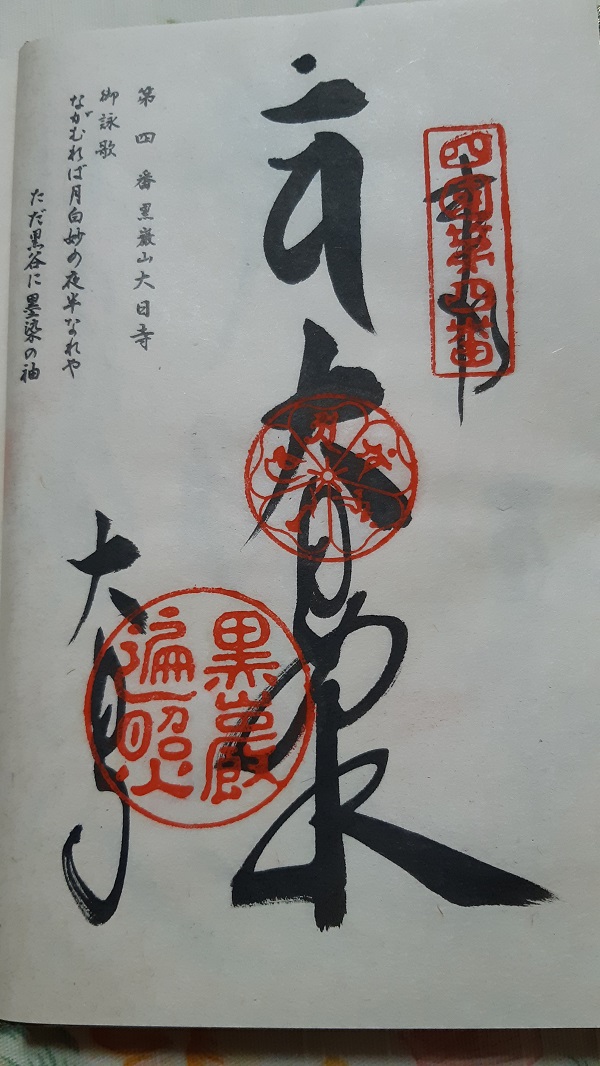 四國第四番
大日如来
黒巌
遍照
大日寺
第四番黒巌山大日寺
御詠歌
ながむれば月白妙の夜半なれや
ただ黒谷に墨染の袖